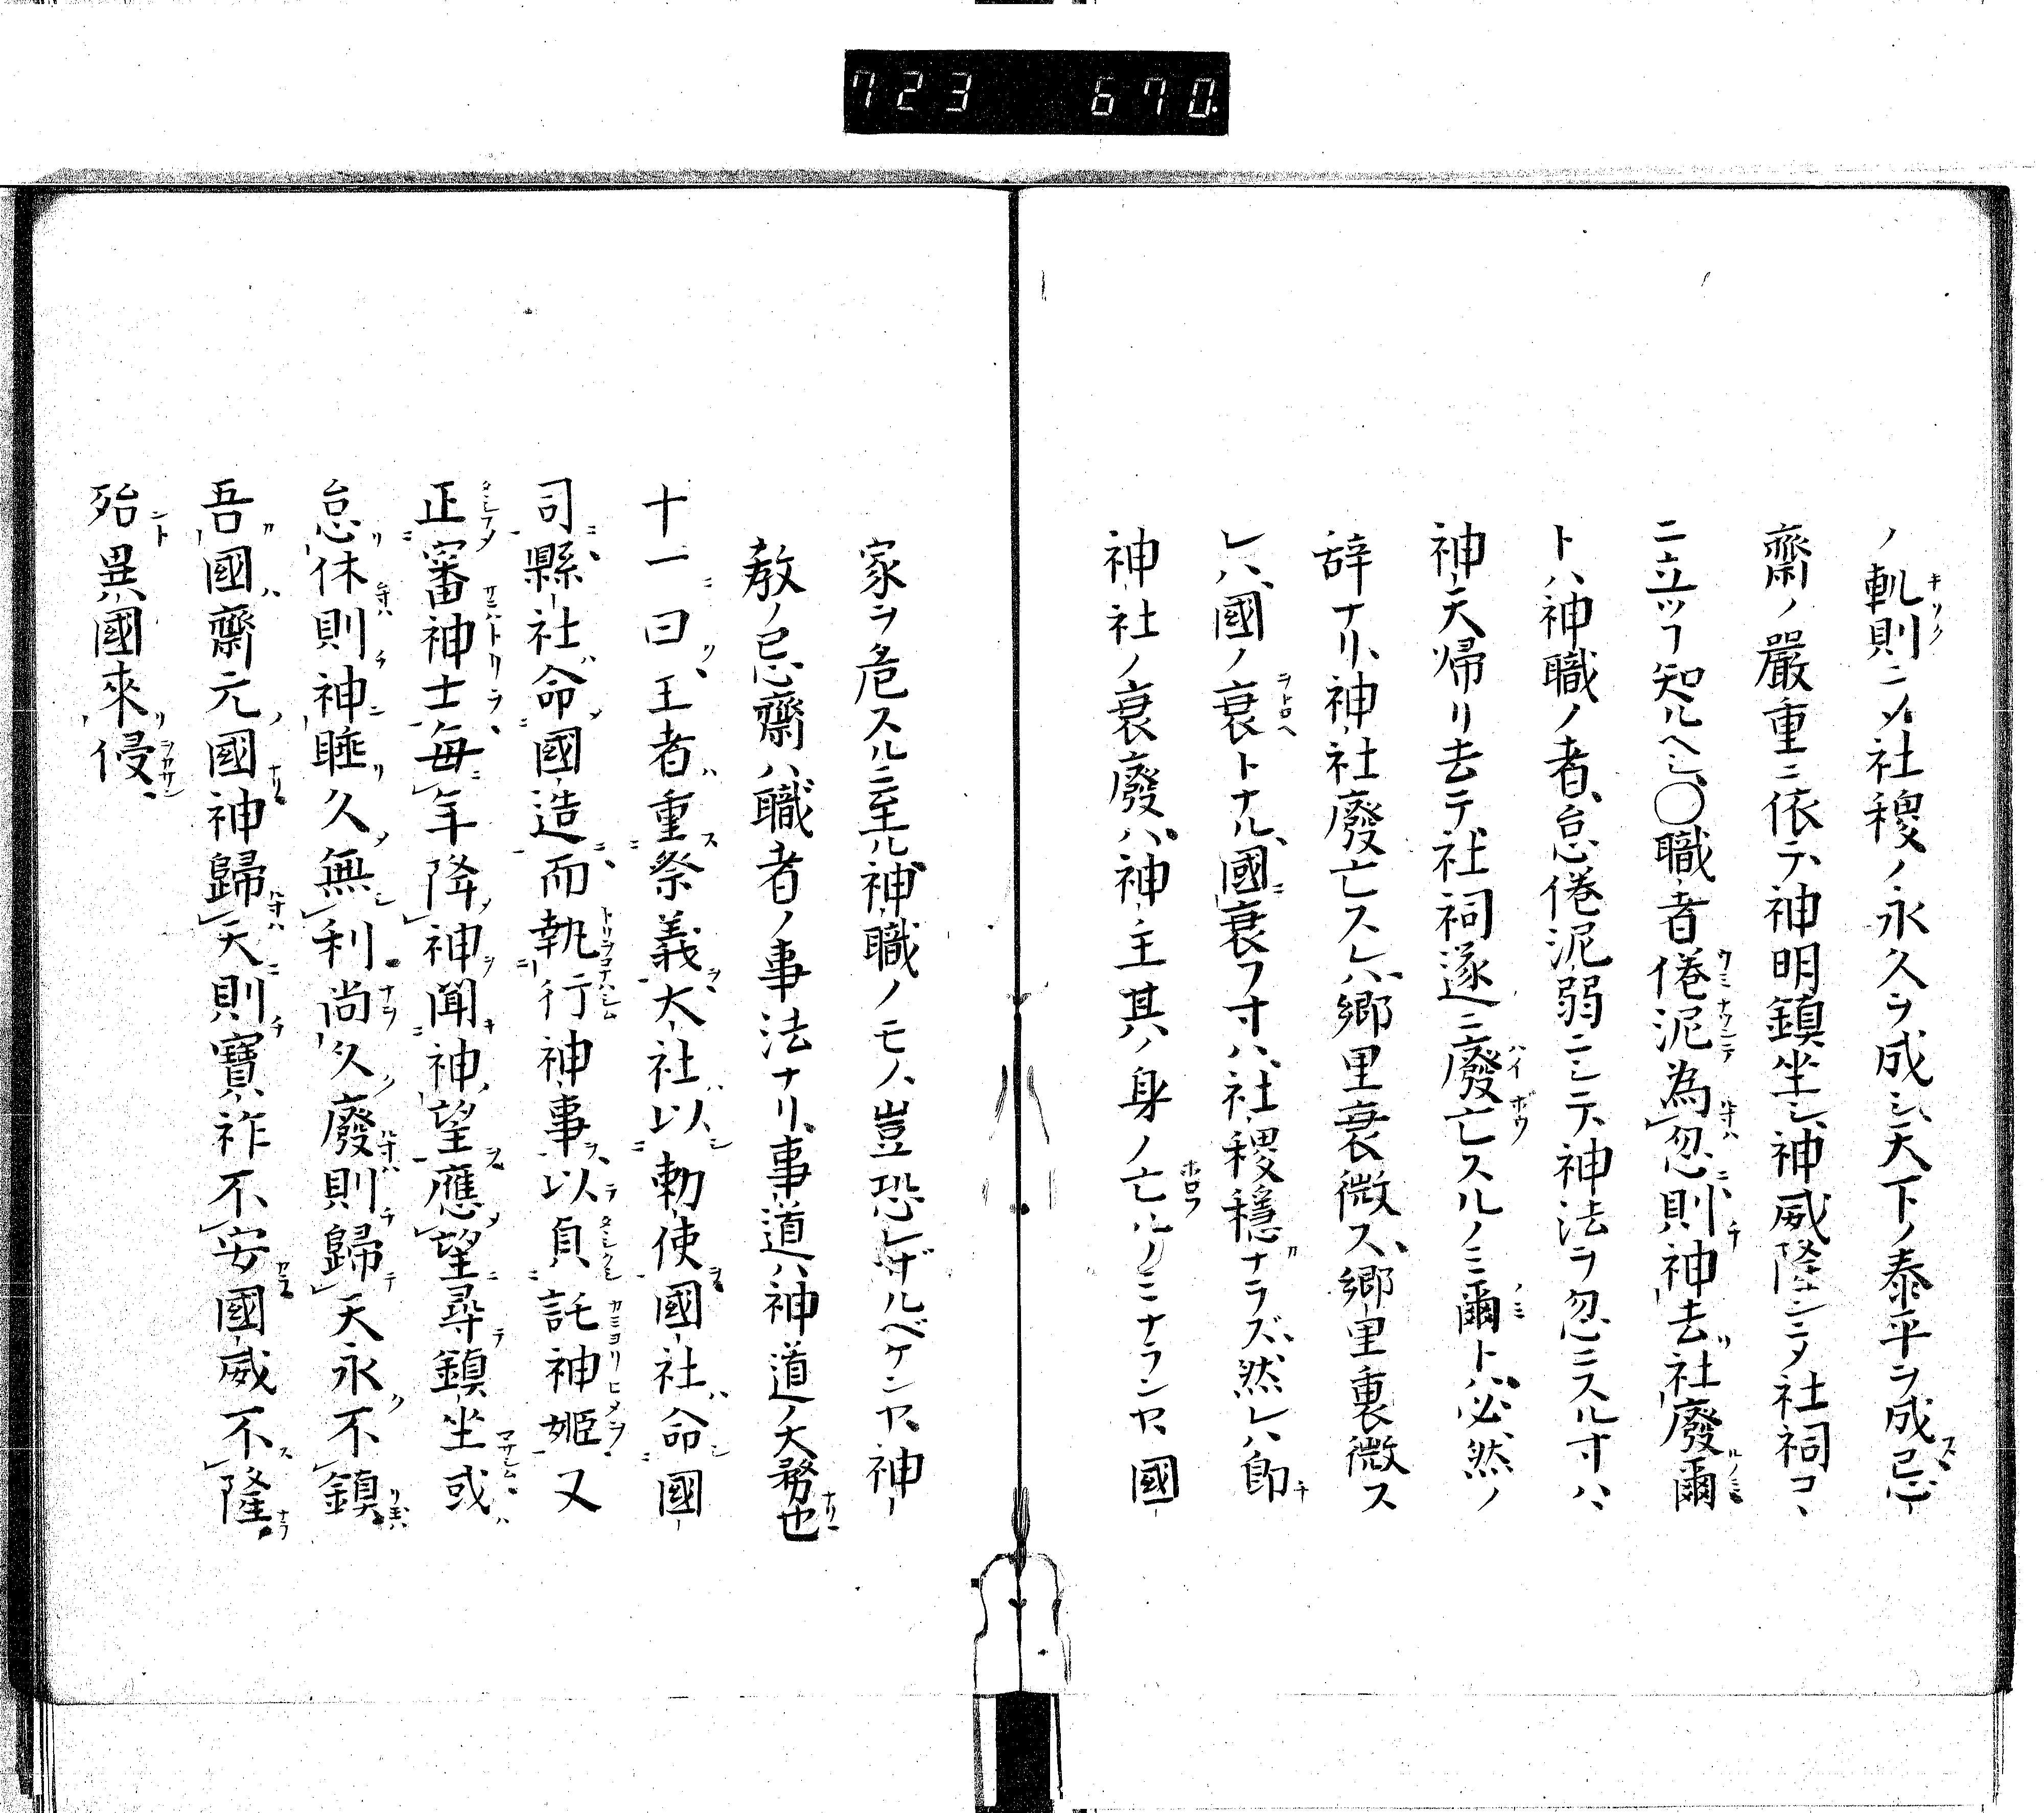 723 670.
ノ軌則ニ〆社稷ノ永久ヲ成シ、天下ノ泰平ヲ成ス、忌
齋ノ嚴重ニ依テ、神明鎮坐シ、神威隆シニ〆社祠コヽ
ニ立ツヿ知ルヘシ、〇職者倦泥為忽則神去社廢爾
トハ神職ノ者、怠倦泥弱ニシテ、神法ヲ忽ニスル寸ハ、
神天帰リ去テ社祠遂ニ廢亡スルノミ爾トハ、必然ノ
辞ナリ、神社廢亡スレハ、郷里衰微ス、郷里衰微ス
レハ、國ノ衰トナル、國衰フ寸ハ、社稷穩ナラズ、然レハ即
神社ノ衰廢ハ、神主其ノ身ノ亡ルノミナランヤ、國
家ヲ危スルニ至ル神職ノモノ、豈恐レザルベケンヤ、神
教ノ忌齋ハ職者ノ事法ナリ、事道ハ神道ノ大務也
十一曰王者重祭義大社以勅使國社命國
司縣社命國造而執行神事以貞託神姬又
正審神士毎年降神聞神望應望尋鎮坐或
怠休則神睡久無利尚久廢則歸天永不鎮
吾國齋元國神歸天則寶祚不安國威不隆
殆異國來侵